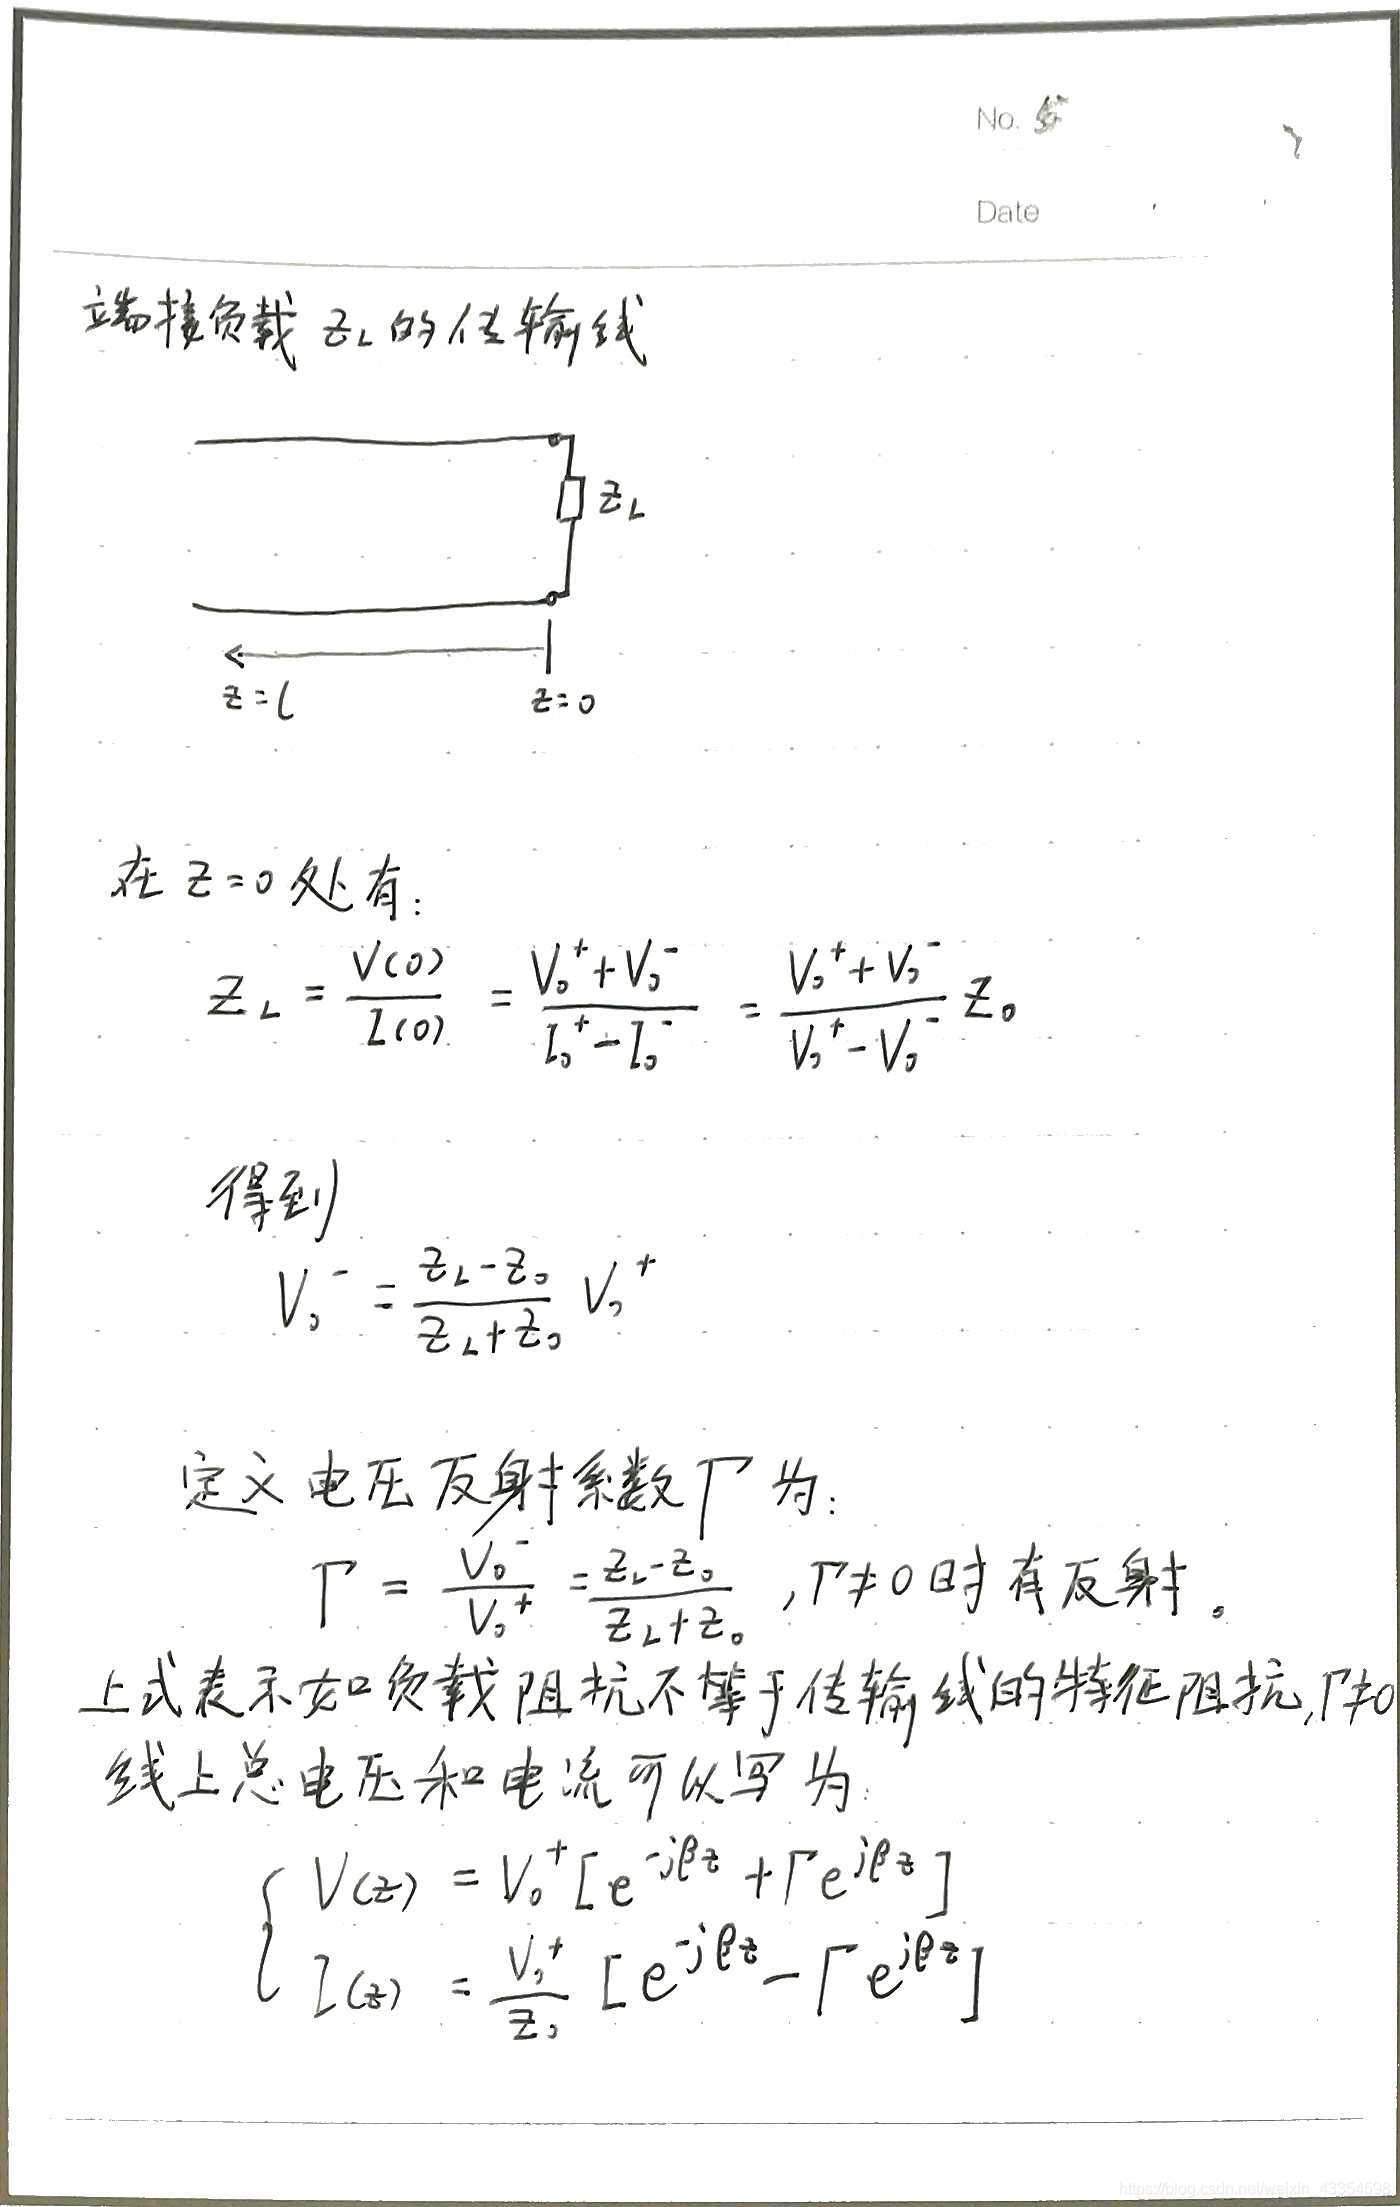 No. 5
Date
端接负载 Z_L 的传输线
Z_L
z=l
z=0
在 z=0 处有:
Z_L = V(0)/I(0) = (V₀⁺+V₀⁻)/(I₀⁺-I₀⁻) = (V₀⁺+V₀⁻)/(V₀⁺-V₀⁻) Z₀
得到
V₀⁻ = (Z_L-Z₀)/(Z_L+Z₀) V₀⁺
定义电压反射系数Γ为:
Γ = V₀⁻/V₀⁺ = (Z_L-Z₀)/(Z_L+Z₀) , Γ≠0时有反射。
上式表示如负载阻抗不等于传输线的特征阻抗,Γ≠0
线上总电压和电流可以写为:
V(z) = V₀⁺[e^{-jβz}+Γe^{jβz}]
I(z) = V₀⁺/Z₀ [e^{-jβz}-Γe^{jβz}]